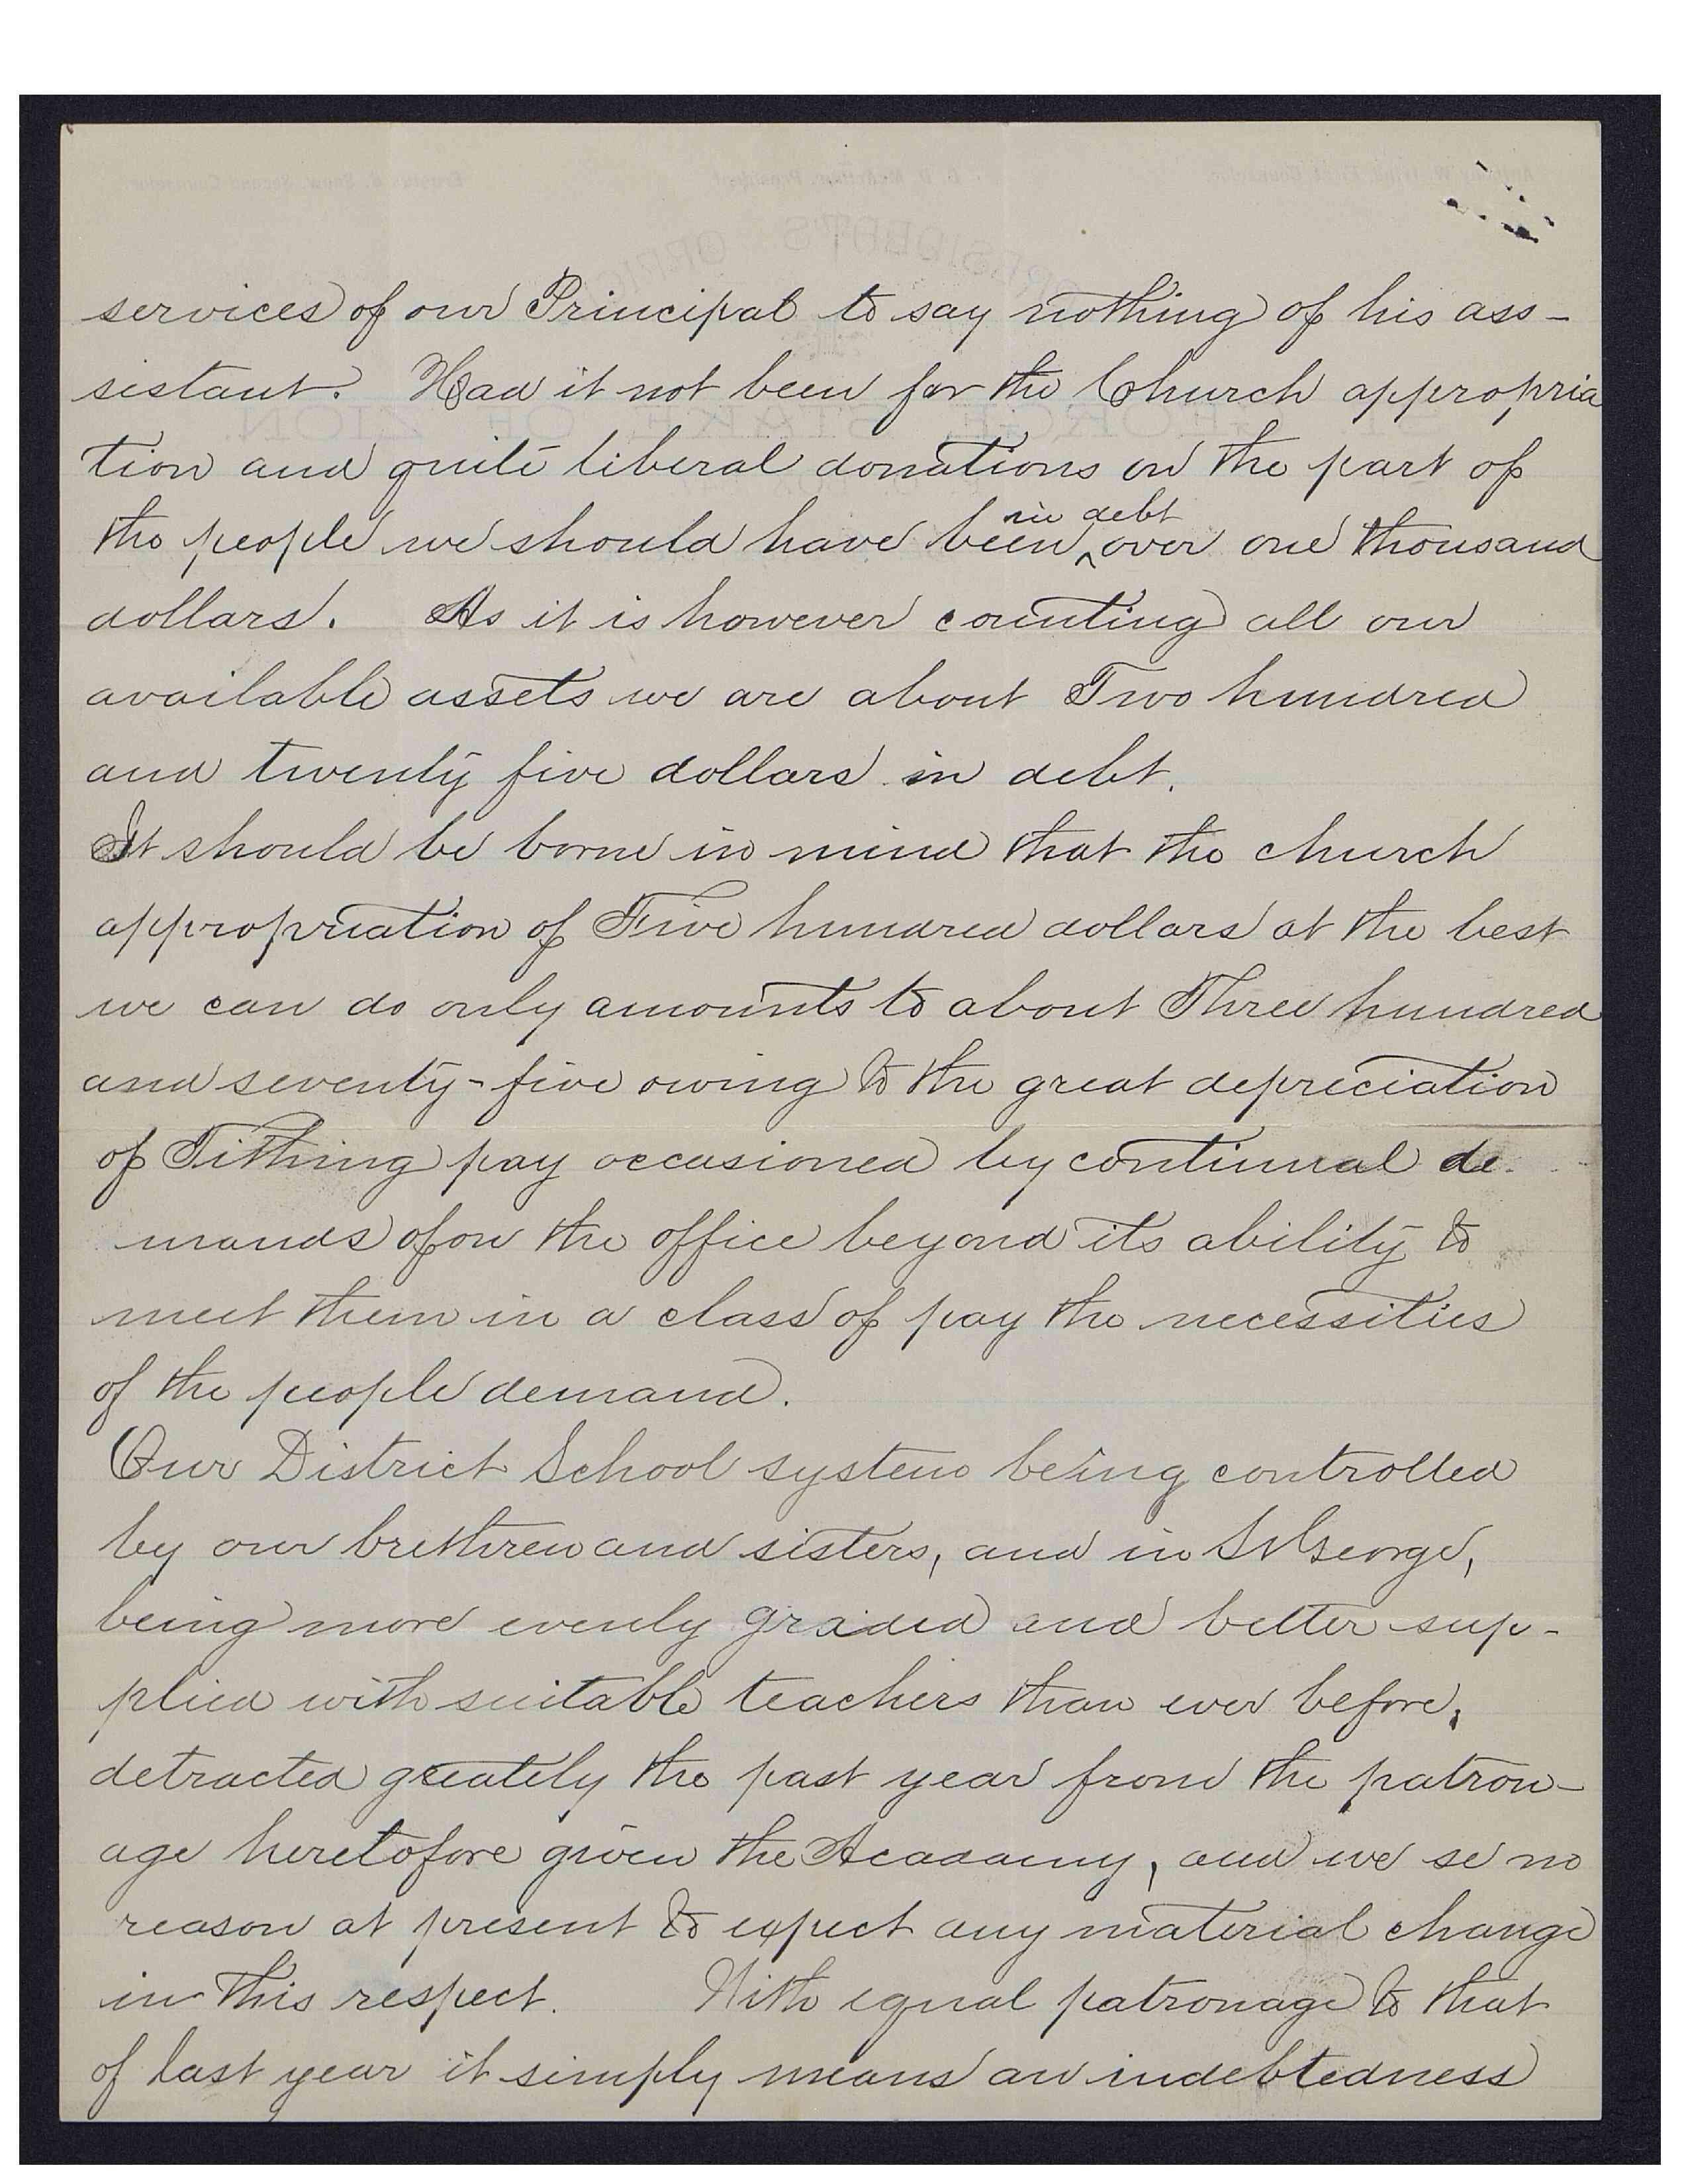 services of our Principal to say nothing of his ass-
sistant. Had it not been for the Church appropria
tion and quite liberal donations on the part of
in debt
the people we should have been ^ over one thousand
dollars. As it is however counting all our
available assets we are about Two hundred
and twenty five dollars in debt.
It should be borne in mind that the church
appropriation of Five hundred dollars at the best
we can do only amounts to about Three hundred
and seventy-five owing to the great depreciation
of Tithing pay occasioned by continual de-
mands ofon the office beyond its ability to
meet them in a class of pay the necessities
of the people demand.
Our District School system being controlled
by our brethren and sisters, and in St George,
being more evenly graded and better sup-
plied with suitable teachers than ever before,
detracted greately the past year from the patron-
age heretofore given the Acadamy, and we se no
reason at present to expect any material change
in this respect. With equal patronage to that
of last year it simply means an indebtedness